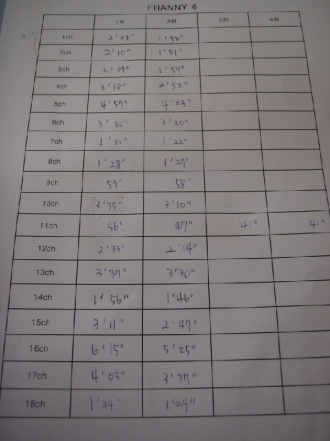 FRANNY 4
1회 2회 3회 4회
1ch 2'08" 1'50"
2ch 2'10" 1'51"
3ch 2'19" 1'54"
4ch 3'18" 2'52"
5ch 4'57" 4'03"
6ch 3'30"
7ch 1'22"
8ch 1'28" 1'27"
9ch 59" 58"
10ch 3'35" 3'10"
11ch 56" 47" 41" 41"
12ch 2'33" 2'14"
13ch 3'37" 3'30"
14ch 1'56" 1'46"
15ch 3'11" 2'47"
16ch 6'15" 5'25"
17ch 4'03" 3'37"
18ch 1'24" 1'24"